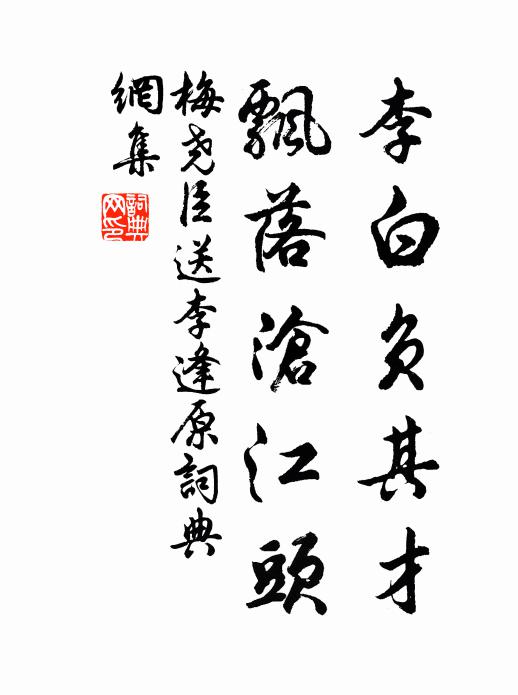 李白負其才
飄落滄江頭
梅堯臣送李逢原詞典
網集
詞典網印